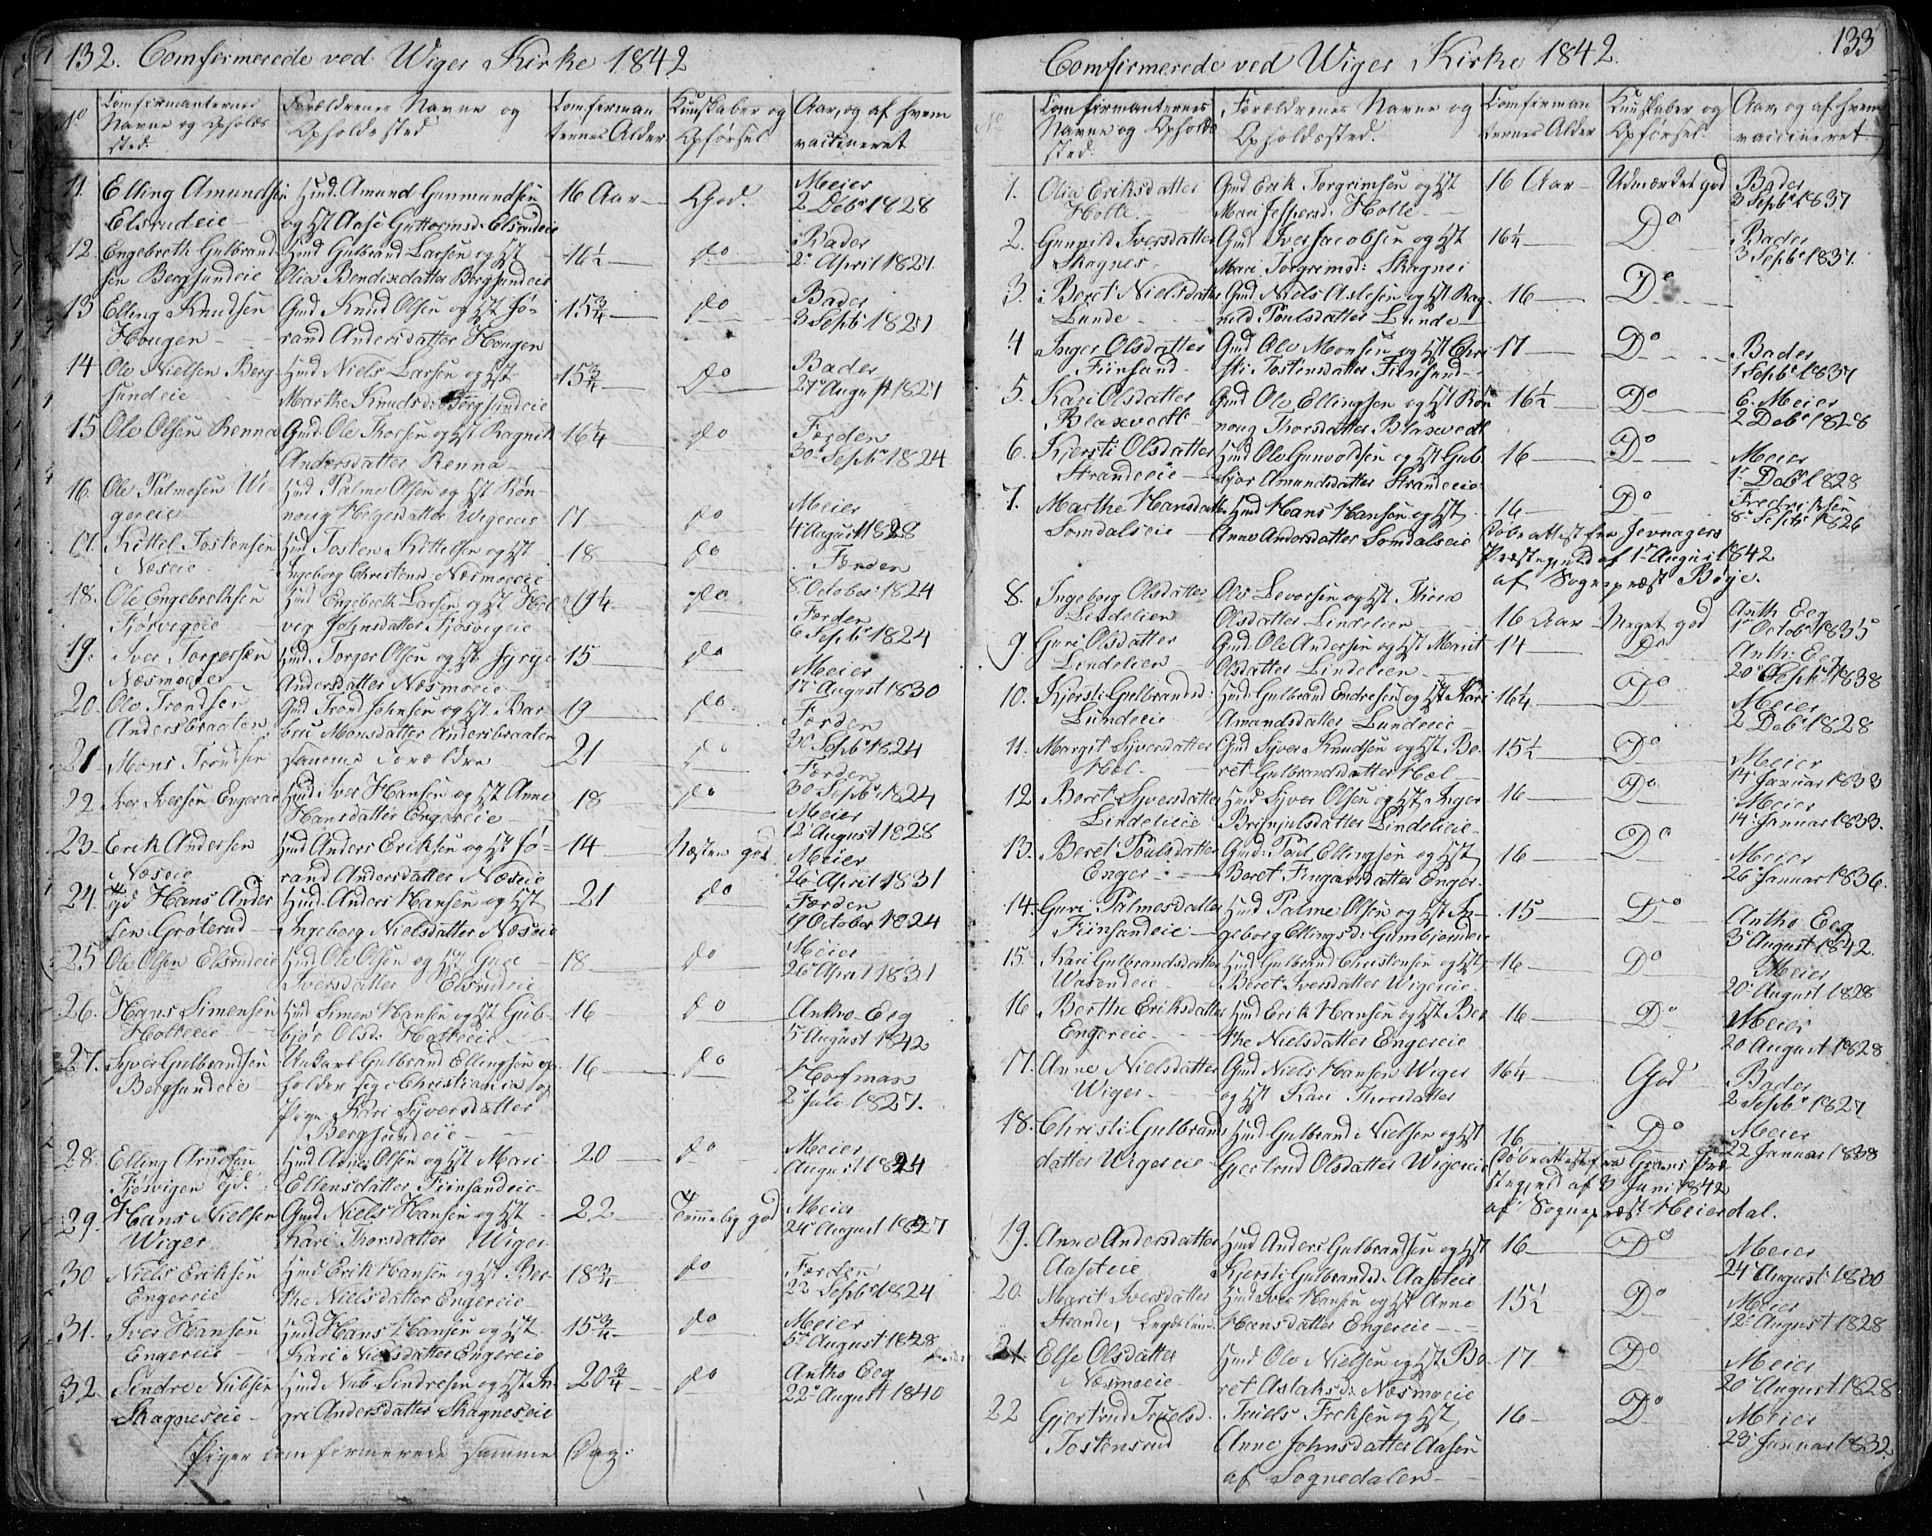 132. Comfirmerede ved Wiger Kirke 1842
No
Comfirmanternes Navne og Opholds sted.
Forældrenes Navne og Opholdssted
Comfirman ternes Alder
Kundskaber og Opførsel
Aar, og af hvem vaccineret
11. Elling Amundsen Elsrudeie Hmd. Amund Gunmundsen og Hst Aase Guttormsd. Elsrudeie 16 Aar God. Meier 2 Debr 1828
12. Engebreth Gulbrand sen Bergsundeie Hmd Gulbrand Larsen og Hst Olia Bendixdatter Bergsundeie 16½ do Bader 2 April 1827
13 Elling Knudsen Hougen Gmd Knud Olsen og Hst Jø- rand Andersdatter Hougen 15¾ do Bader 3 Septbr 1827
14 Ole Nielsen Berg- sundeie Hmd Niels Larsen og Hst Marthe Knudsd: Bergsundeie 15¾ Do Bader 27 August 1827
15 Ole Olsen Renna Gmd. Ole Thorsen og Hst Ragnild Andersdatter Renna 16¼ do Førden 30 Septbr 1824
16. Ole Palmesen Wi- gereie Hmd Palme Olsen og Hst Røn- noug Helgesdatter Wigereie 17 do Meier 4 August 1828
17. Kittil Tostensen Næseie Hmd Tosten Kittelsen og Hst Ingeborg Christensd: Næsmoeie 18 do Førden 8 October 1824
18. Ole Engebrethsen Fjøsvigeie Hmd Engebreth Larsen og Hst Hel- vig Johnsdatter Fjøsvigeie 19¼ do Førden 6 Septbr 1824
19. Iver Torgersen Næsmoeie Hmd. Torger Olsen og Hst Jyrye Andersdatter Næsmoeie 15 do Meier 17 August 1830
20. Ole Trondsen Andersbraaten Gmd Trond Johnsen og Hst Bar- bru Monsdatter Andersbraaten 19 do Førden 30 Septbr 1824
21 Mons Trondsen samme Forældre 21 do Førden 30 Septbr 1824
22 Iver Iversen Engereie Hmd Iver Hansen og Hst Anne Hansdatter Engereie 18 do Meier 12 August 1828
23. Erik Andersen Næseie Hmd Anders Eriksen og Hst Jø- rand Andersdatter Næseie 14 Næsten god Meier 26 April 1831
24. Hans Ander sen Grøterud Hmd. Anders Hansen og Hst Ingeborg Nielsdatter Næseie 21 do Førden 19 October 1824
25 Ole Olsen Elsrudeie Hmd Ole Olsen og Hst Guri Iversdatter Elsrudeie 18 do Meier 26 April 1831
26. Hans Simensen Holteie Hmd Simen Hansen og Hst Gub- bjør Olsd: Holteie 16 do Antho. Eeg 5 August 1842
27. Syver Gulbrandsen Bergsundeie Unkarl Gulbrand Ellingsen op- holder sig i Christiania og Pige Kari Syversdatter Bergsundeie 16 do Hofman 2 Juli 1827.
28. Elling Arnesen Fjøsvigen Hmd Arne Olsen og Hst Mari Ellensdatter Fiinsandeie 20 do Meier August 1824
29. Hans Nielsen Wiger Gmd Niels Hansen og Hst Kari Thorsdatter Wiger 22 Temmelig god Meier 24 August 1827
30 Niels Eriksen Engereie Hmd Erik Hansen og Hst Ber- the Nielsdatter Engereie 18¾ do Førden 22 Septbr 1824
31. Iver Hansen Engereie Hmd Hans Hansen og Hst Kari Nielsdatter Engereie 15¾ do Meier 5 August 1828
32. Sendre Nubsen Skagneseie Hmd Nub Sendresen og Hst In- gri Andersdatter Skagneseie 20¾ do Antho Eeg 22 August 1840
Piger comfirmerede samme Dag:
133
Comfirmerede ved Wiger Kirke 1842.
No
Comfirmanternes Navne og Opholds sted.
Forældrenes Navne og Opholdssted.
Comfirman ternes Alder
Kundskaber og Opførsel
Aar, og af hvem vaccineret
1. Olia Eriksdatter Holte Gmd Erik Torgrimsen og Hst Mari Jespersd: Holte 16 Aar Udmærket god Bader 3 Septbr 1837
2. Gunnild Iversdatter Skagnes Gmd Iver Jacobsen og Hst Mari Torgrimsd: Skagnes 16¼ Do Bader 3 Septbr 1837.
3. Beret Nielsdatter Lunde Gmd Niels Aslesen og Hst Rag- nild Poulsdatter Lunde 16 Do
4 Inger Olsdatter Fiinsand Gmd Ole Monsen og Hst Chri sti Tostensdatter Fiinsand 17 Do Bader 1 Septbr 1837
5. Kari Olsdatter Blaxevedt Gmd Ole Ellingsen og Hst Røn noug Thorsdatter Blaxevedt 16½ Do C. Meier 2 Debr 1828
6. Kjersti Olsdatter Strandeeie Hmd Ole Gunvoldsen og Hst Gub- bjør Amundsdatter Strandeeie 16 Do Meier 1 Debr 1828
7. Marthe Hansdatter Somdalseie Hmd Hans Hansen og Hst Anne Andersdatter Somdalseie 16 Do Fredriksen 8 Septbr 1826
Døbeattest fra Jevnagers Præstegjeld af 1 August 1842 af Sognepræst Bøye.
8. Ingeborg Olsdatter Lindelien Ole Levorsen og Hst Thora Olsdatter Lindelien 16 Aar Meget god Anth Eeg 1 Octobr 1835
9 Guri Olsdatter Lindelien Gmd Ole Andersen og Hst Marit Olsdatter Lindelien 14 Do Anth: Eeg 20 Septbr 1838
10. Kjersti Gulbrandsd: Lundeeie Hmd Gulbrand Endresen og Hst Kari Amundsdatter Lundeeie 16¼ Do Meier 2 Debr 1828
11. Margit Syversdatter Hæl Gmd Syver Knudsen og Hst Be- ret Gulbrandsdatter Hæl 15½ Do Meier 14 Januar 1833
12 Beret Syversdatter Lindelieie Hmd Syver Olsen og Hst Inger Brinjulsdatter Lindelieie 16 Do Meier 14 Januar 1833.
13. Beret Poulsdatter Enger Gmd: Poul Ellingsen og Hst Beret Fingarsdatter Enger. 16 Do Meier 26 Januar 1836.
14. Guri Palmesdatter Fiinsandeie Hmd Palme Olsen og Hst In- geborg Ellingsd: Gunbjørndeie 15 Do Antho Eeg 3 August 1842.
15. Kari Gulbrandsdatter Wasendeie Hmd Gulbrand Christensen og Hst Beret Iversdatter Wigereie 16 Do Meier 20 August 1828
16 Berthe Eriksdatter Engereie Hmd Erik Hansen og Hst Ber- the Nielsdatter Engereie 16 Do Meier 20 August 1828
17. Anne Nielsdatter Wiger Gmd Niels Hansen Wiger og Hst Kari Thorsdatter 16¼ God Bader 2 Septbr 1827
18. Christi Gulbrands datter Wigereie Hmd Gulbrand Nielsen og Hst Gjertrud Olsdatter Wigereie 16 Do Meier 22 Januar 1838
Døbeattest fra Grans Præ- stegjeld af 3 Juni 1842 af Sognepræst Heierdal.
19. Anne Andersdatter Aaseteie Hmd Anders Gulbrandsen og Hst Kjersti Gulbrandsd: Aaseteie 16 Do Meier 24 August 1830
20. Marit Iversdatter Strande, Legdelem Hmd Iver Hansen og Hst Anne Hansdatter Engereie 15½ Do Meier 12 August 1828
21 Else Olsdatter Næsmoeie Hmd Ole Nielsen og Hst Be- ret Aslaksd: Næsmoeie 17 Do Meier 20 August 1828
22 Gjertrud Truelsd. Tostensrud Truels Eriksen og Hst Anne Johnsdatter Aasen af Sognedalen 16 Do Meier 23 Januar 1832